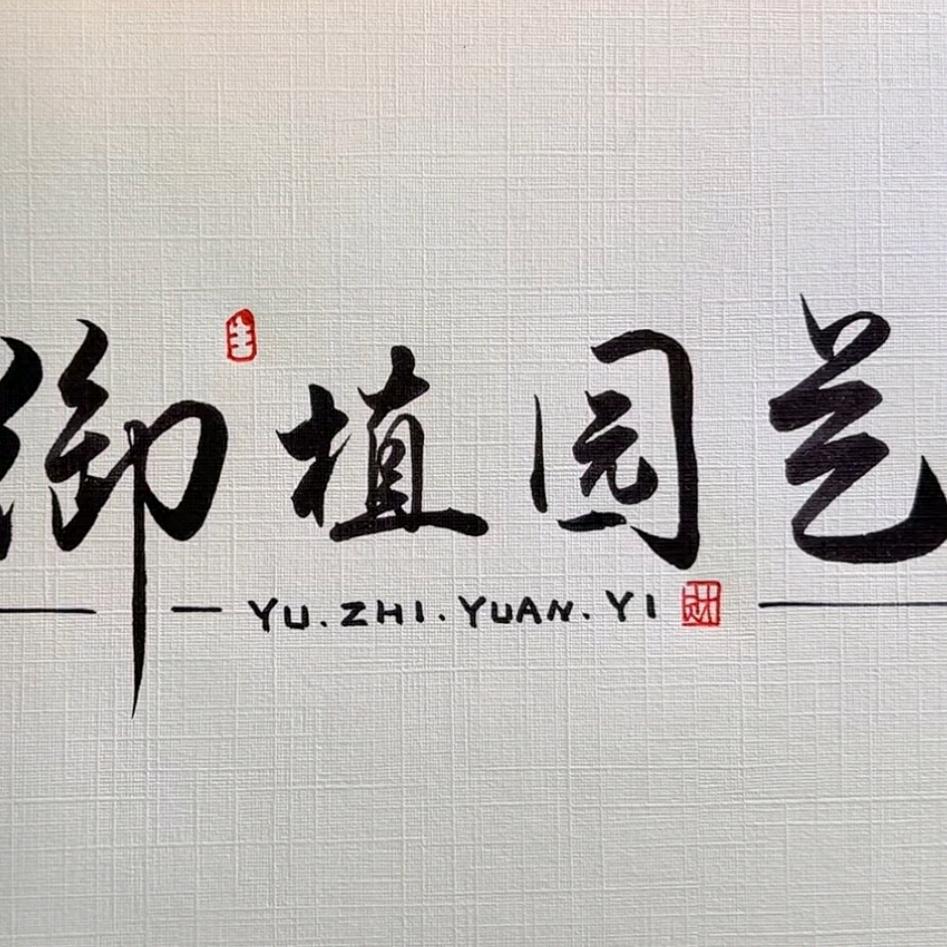 御植园艺
YU.ZHI.YUAN.YI